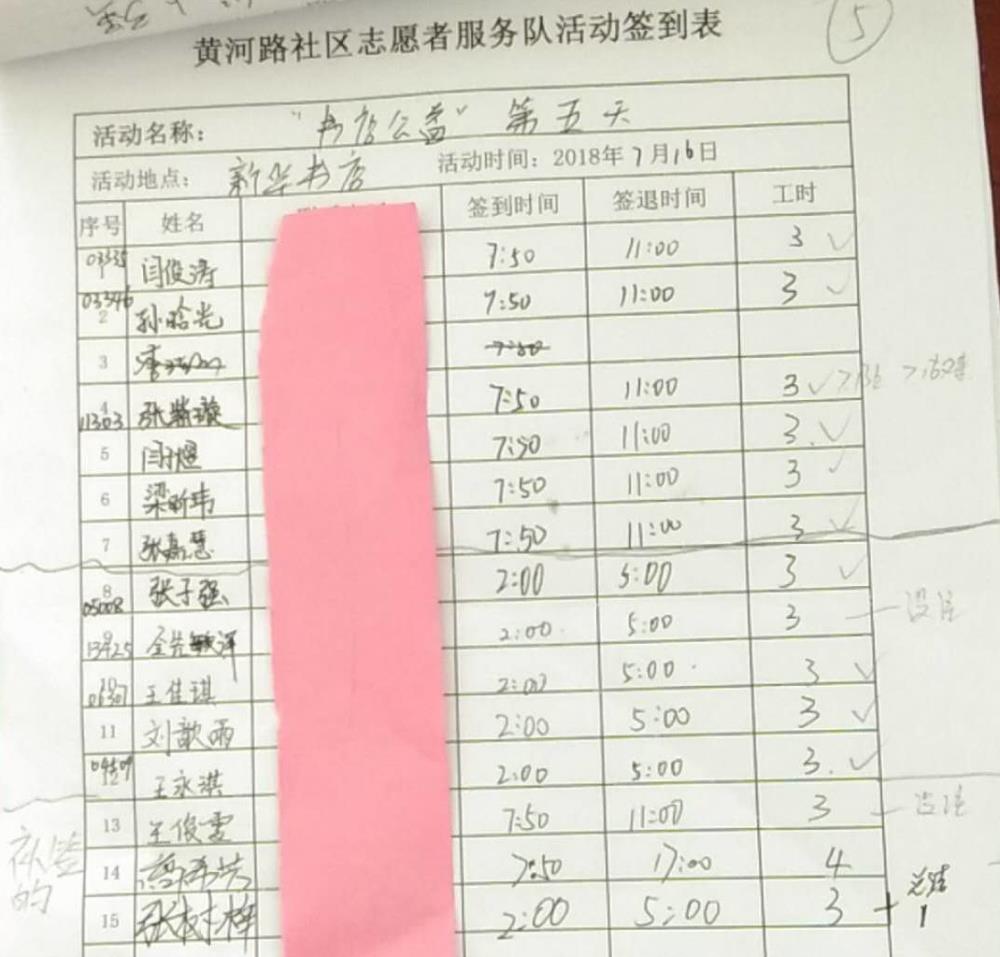 黄河路社区志愿者服务队活动签到表
5
活动名称： "书店公益" 第五天
活动地点： 新华书店 活动时间：2018年7月16日
序号 姓名 签到时间 签退时间 工时
03335 闫俊涛 7:50 11:00 3 ✓
03346 2 孙晗光 7:50 11:00 3 ✓
3 7:50
4 11303 张紫璇 7:50 11:00 3 ✓
5 闫煜 7:50 11:00 3 ✓
6 梁昕玮 7:50 11:00 3 ✓
7 张嘉慧 7:50 11:00 3 ✓
8 05008 张子强 2:00 5:00 3 ✓
9 13425 2:00 5:00 3 没注
10 06307 王佳琪 2:00 5:00 3 ✓
11 刘歆雨 2:00 5:00 3 ✓
04509 12 王永淇 2:00 5:00 3 ✓
13 王俊雯 7:50 11:00 3 没注
补签的
14 高希芸 7:50 17:00 4
15 张树梅 2:00 5:00 3 + 总结 1